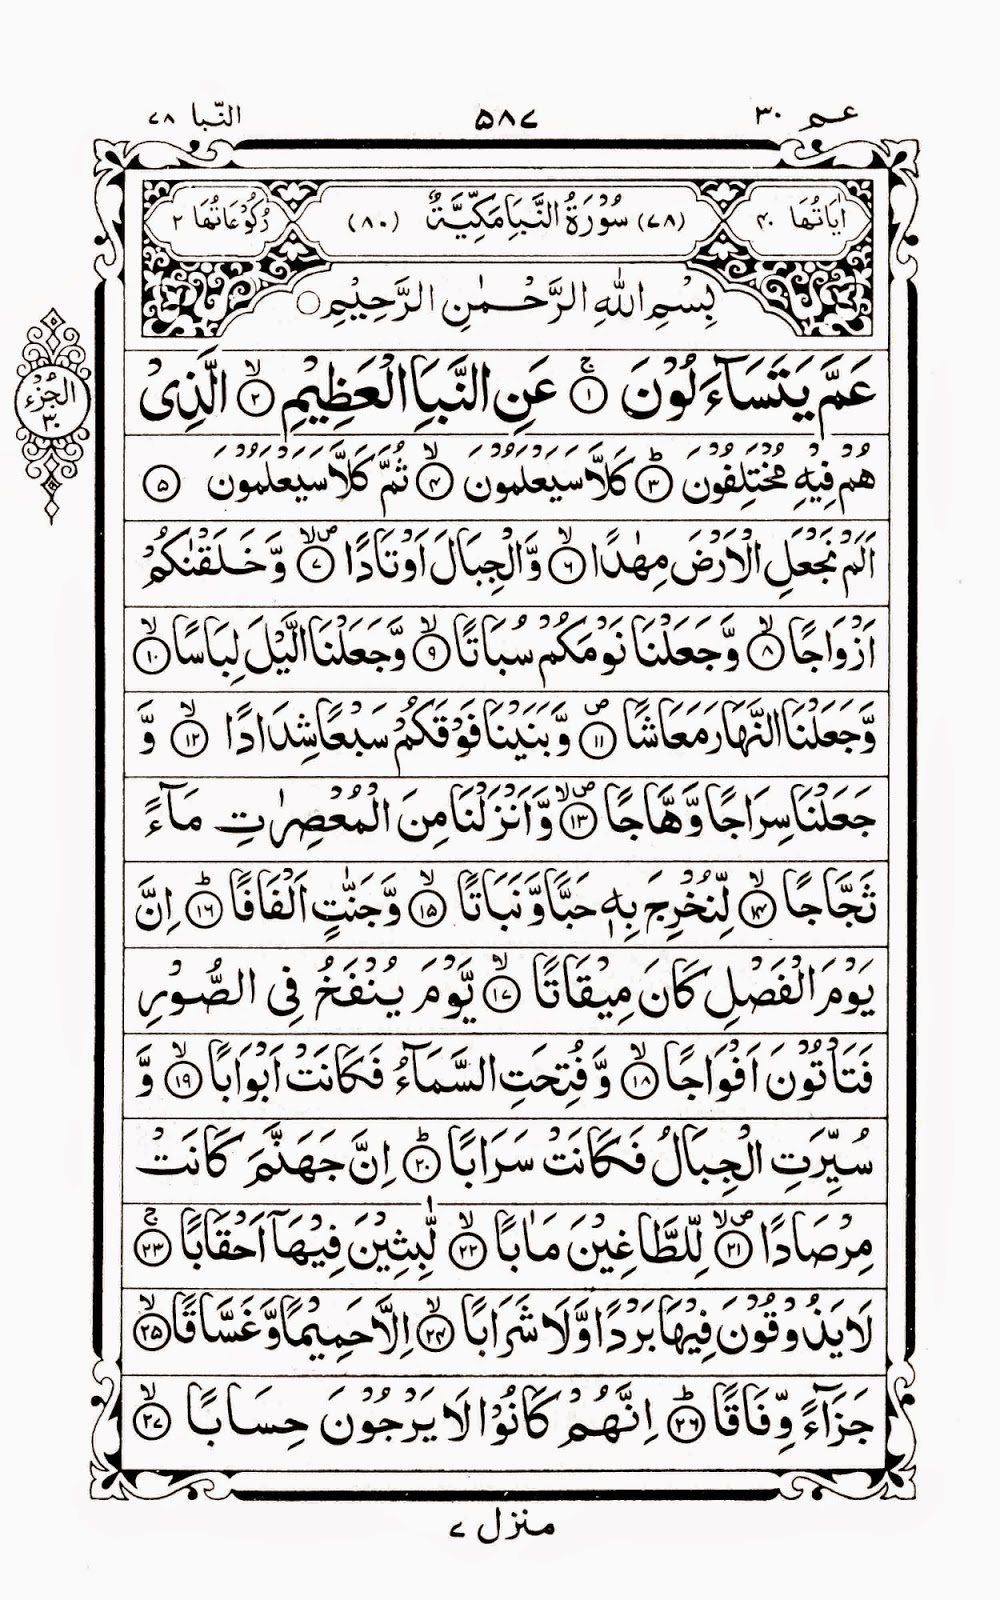 عـــم ۳۰
۵۸۷
النّبا ۷۸
اٰيَاتُهَا ۴۰
(۷۸) سُوْرَةُ النَّبَاِ مَكِّيَّةٌ (۸۰)
رُكُوْعَاتُهَا ۲
بِسْمِ اللهِ الرَّحْمٰنِ الرَّحِيْمِ ○
الجُزْءُ ۳۰
عَمَّ يَتَسَآءَلُوْنَ ۚ‏﴿۱﴾ عَنِ النَّبَاِ الْعَظِيْمِ ۙ‏﴿۲﴾ الَّذِىْ
هُمْ فِيْهِ مُخْتَلِفُوْنَ ؕ‏﴿۳﴾ كَلَّا سَيَعْلَمُوْنَ ۙ‏﴿۴﴾ ثُمَّ كَلَّا سَيَعْلَمُوْنَ ﴿۵﴾
اَلَمْ نَجْعَلِ الْاَرْضَ مِهٰدًا ۙ‏﴿۶﴾ وَّالْجِبَالَ اَوْتَادًا ۙ‏ۖ﴿۷﴾ وَّخَلَقْنٰكُمْ
اَزْوَاجًا ۙ‏﴿۸﴾ وَّجَعَلْنَا نَوْمَكُمْ سُبَاتًا ۙ‏﴿۹﴾ وَّجَعَلْنَا الَّيْلَ لِبَاسًا ۙ‏﴿۱۰﴾
وَّجَعَلْنَا النَّهَارَ مَعَاشًا ۪‏﴿۱۱﴾ وَّبَنَيْنَا فَوْقَكُمْ سَبْعًا شِدَادًا ۙ‏﴿۱۲﴾ وَّ
جَعَلْنَا سِرَاجًا وَّهَّاجًا ۙ‏ۖ﴿۱۳﴾ وَّاَنْزَلْنَا مِنَ الْمُعْصِرٰتِ مَآءً
ثَجَّاجًا ۙ‏﴿۱۴﴾ لِّنُخْرِجَ بِهٖ حَبًّا وَّنَبَاتًا ۙ‏﴿۱۵﴾ وَّجَنّٰتٍ اَلْفَافًا ؕ‏﴿۱۶﴾ اِنَّ
يَوْمَ الْفَصْلِ كَانَ مِيْقَاتًا ۙ‏﴿۱۷﴾ يَّوْمَ يُنْفَخُ فِى الصُّوْرِ
فَتَاْتُوْنَ اَفْوَاجًا ۙ‏﴿۱۸﴾ وَّفُتِحَتِ السَّمَآءُ فَكَانَتْ اَبْوَابًا ۙ‏﴿۱۹﴾ وَّ
سُيِّرَتِ الْجِبَالُ فَكَانَتْ سَرَابًا ؕ‏﴿۲۰﴾ اِنَّ جَهَنَّمَ كَانَتْ
مِرْصَادًا ۙ‏ۖ﴿۲۱﴾ لِّلطَّاغِيْنَ مَاٰبًا ۙ‏﴿۲۲﴾ لّٰبِثِيْنَ فِيْهَاۤ اَحْقَابًا ۚ‏﴿۲۳﴾
لَا يَذُوْقُوْنَ فِيْهَا بَرْدًا وَّلَا شَرَابًا ۙ‏﴿۲۴﴾ اِلَّا حَمِيْمًا وَّغَسَّاقًا ۙ‏﴿۲۵﴾
جَزَآءً وِّفَاقًا ؕ‏﴿۲۶﴾ اِنَّهُمْ كَانُوْا لَا يَرْجُوْنَ حِسَابًا ۙ‏﴿۲۷﴾
منزل ۷